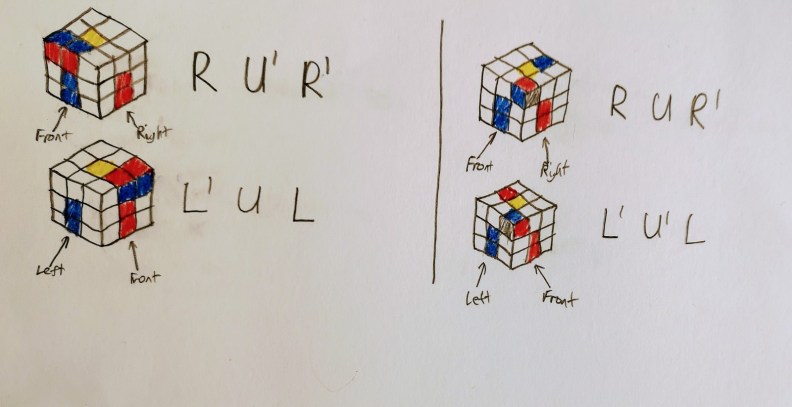 R U' R'
Front Right
L' U L
Left Front
R U R'
Front Right
L' U' L
Left Front